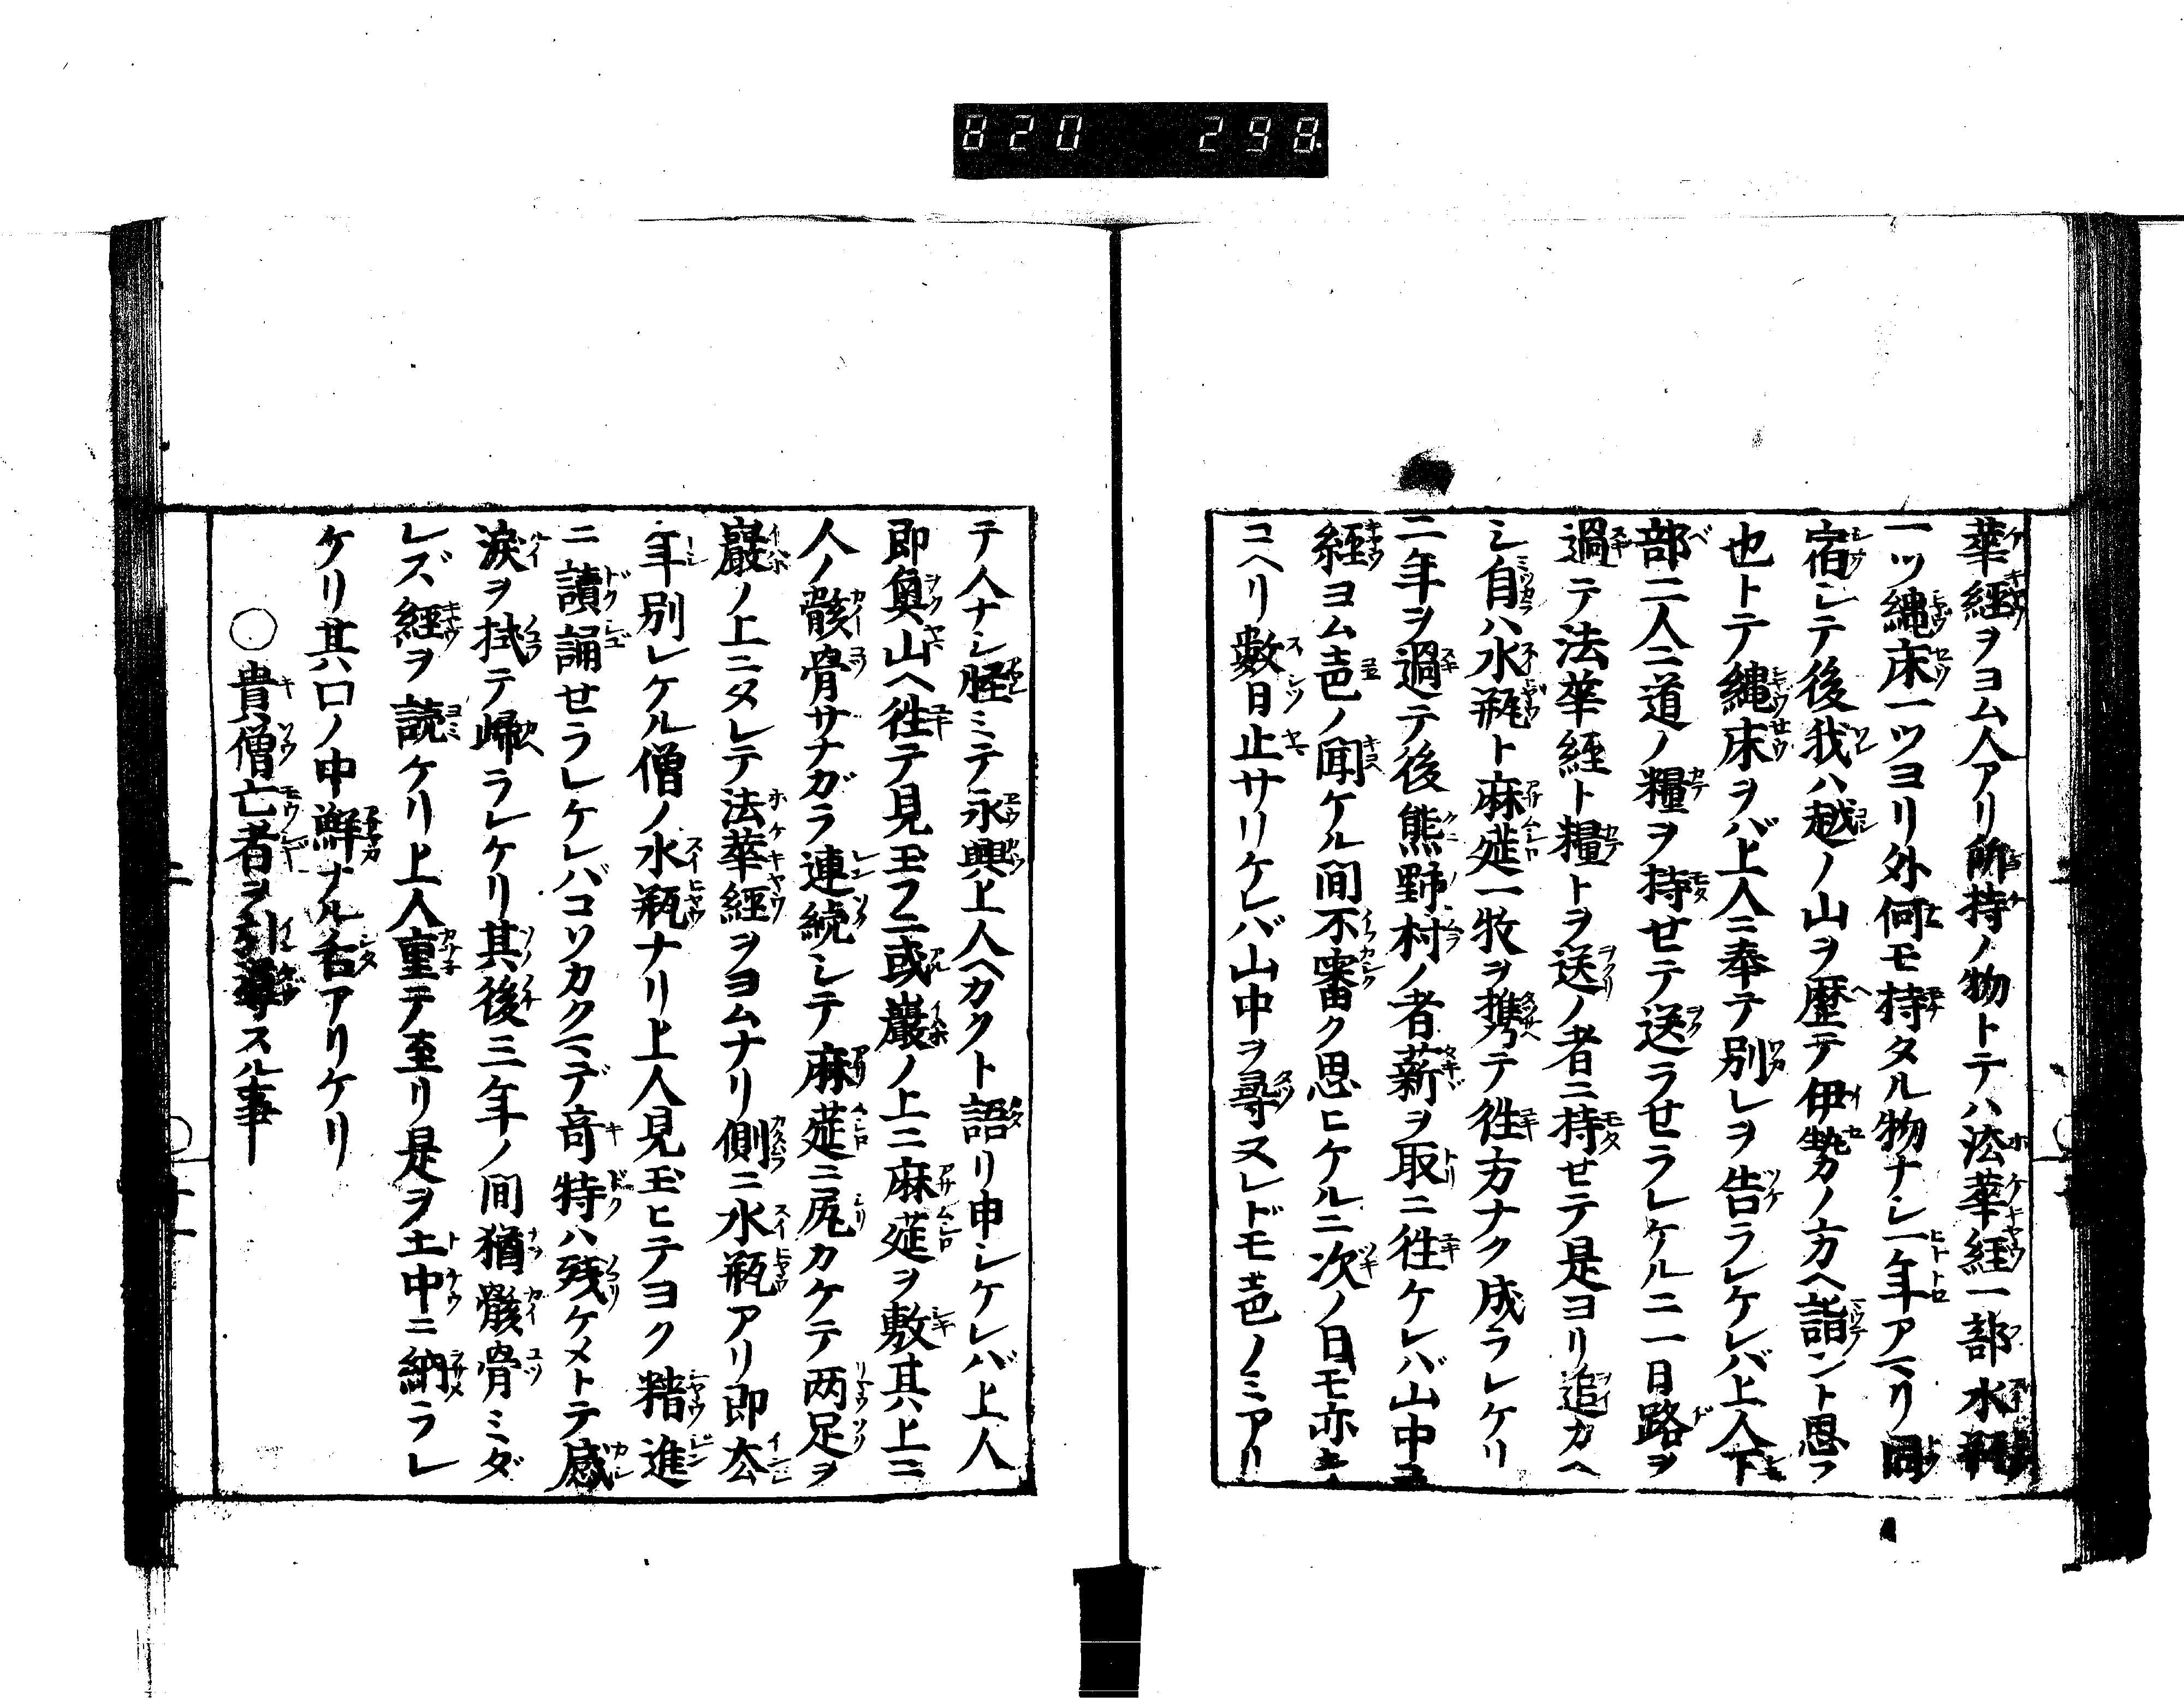 820 298
華經ヲヨム人アリ所持ノ物トテハ法華經一部水瓶
一ツ繩床一ツヨリ外何モ持タル物ナシ一年アマリ同
宿シテ後我ハ越ノ山ヲ歴テ伊勢カノ方ヘ詣ント思フ
也トテ繩床ヲバ上人ニ奉テ別レヲ告ラレケレバ上人下
部二人ニ道ノ糧ヲ持セテ送ラセラレケルニ一日路ヲ
過テ法華經ト糧トヲ送ノ者ニ持セテ是ヨリ追カヘ
シ自ハ水瓶ト麻莚一枚ヲ携テ徃方ナク成ラレケリ
二年ヲ過テ後熊野村ノ者薪ヲ取ニ徃ケレバ山中ヨ
經ヨム声ノ聞ケル間不審ク思ヒケルニ次ノ日モ亦
コヘリ數日止サリケレバ山中ヲ尋ヌレドモ声ノミアリ
テ人ナシ怪ミテ永興上人ヘカクト語リ申シケレバ上人
即奥山ヘ徃テ見玉フニ或巖ノ上ニ麻莚ヲ敷其上ニ
人ノ骸骨サナガラ連続シテ麻莚ニ尻カケテ両足ヲ
巖ノ上ニタレテ法華經ヲヨムナリ側ニ水瓶アリ即去
年別レケル僧ノ水瓶ナリ上人見玉ヒテヨク精進
ニ讀誦セラレケレバコソカクマデ竒特ハ残ケメトテ感
淚ヲ拭テ歸ラレケリ其後三年ノ間猶骸骨ミダ
レズ經ヲ読ケリ上人重テ至リ是ヲ土中ニ納ラレ
ケリ其口ノ中鮮ナル舌アリケリ
○貴僧亡者ヲ引導スル事